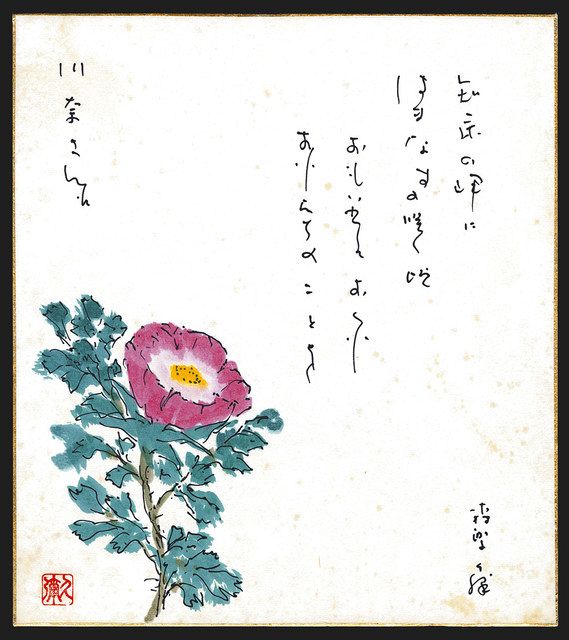 知床の岬に
はまなすの咲く頃
おもい出しておくれ
おれたちのことを
森繁久彌
川奈さん江